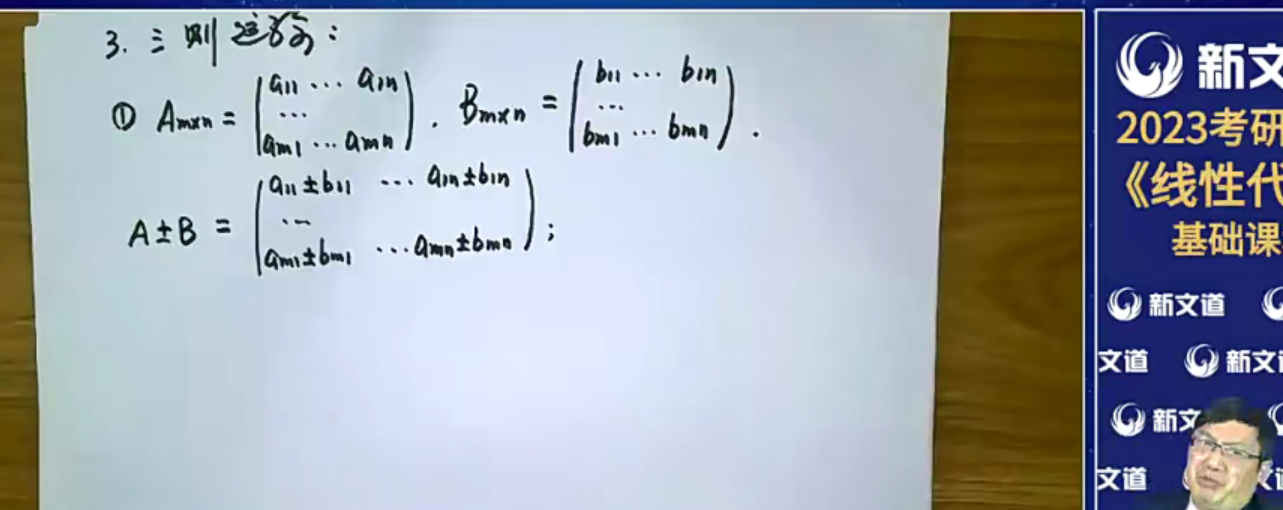 3. 三则运算:
① Amxn = (a11 ... a1n
...
am1 ... amn) . Bmxn = (b11 ... b1n
...
bm1 ... bmn) .
A±B = (a11±b11 ... a1n±b1n
...
am1±bm1 ... amn±bmn) ;
新文
2023考研
《线性代
基础课
新文道
文道 新文道
新文
文道 文道